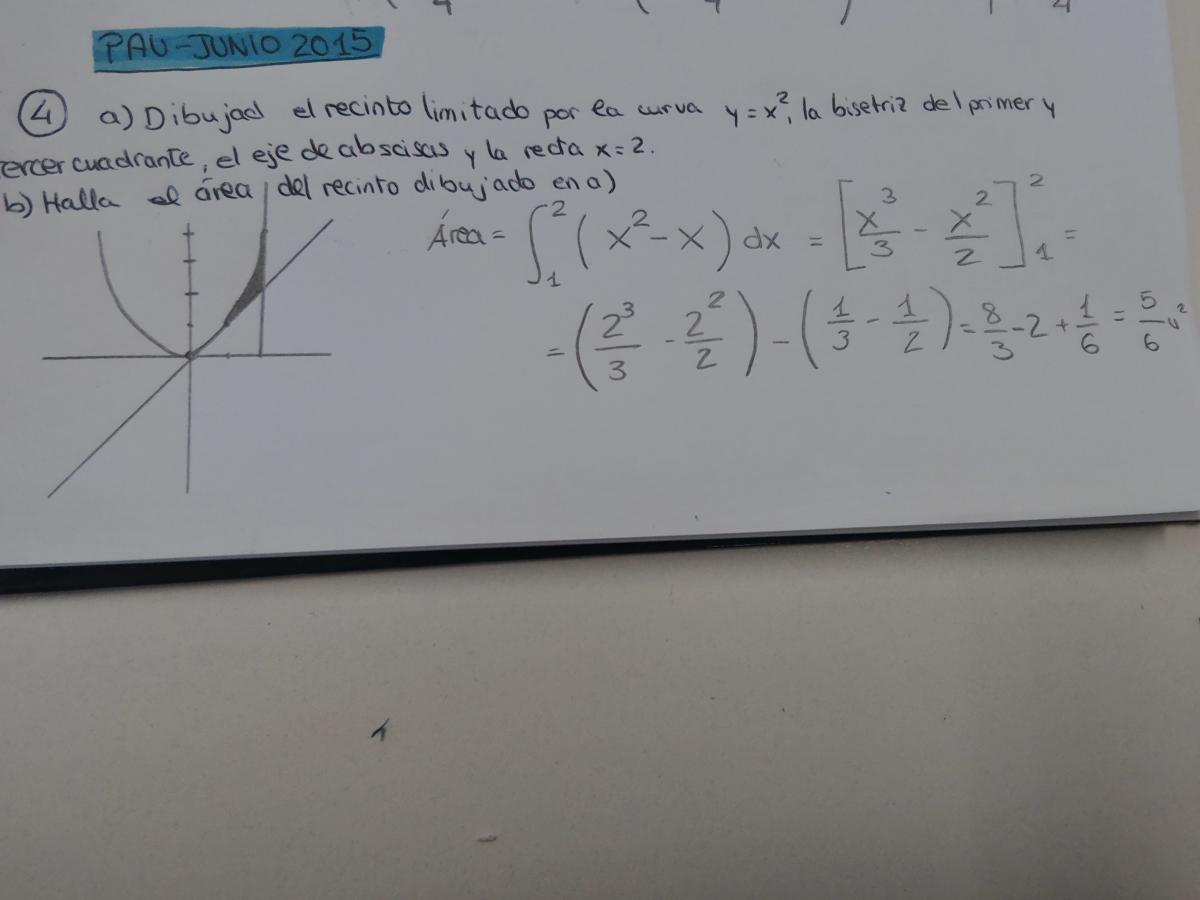 PAU-JUNIO 2015
4 a) Dibujad el recinto limitado por la curva y = x², la bisetriz del primer y
tercer cuadrante, el eje de abscisas y la recta x = 2.
b) Halla el área del recinto dibujado en a)
Área = ∫₁² (x² - x) dx = [x³/3 - x²/2]₁² =
= (2³/3 - 2²/2) - (1/3 - 1/2) = 8/3 - 2 + 1/6 = 5/6 u²